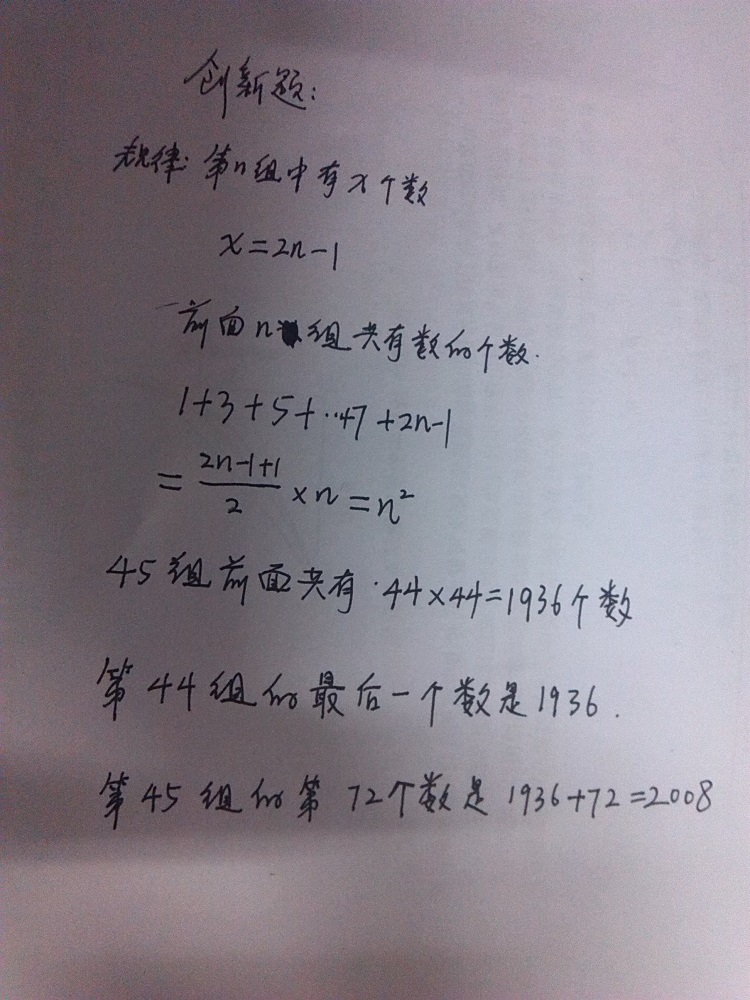 创新题:
规律: 第n组中有x个数
x=2n-1
前面n组共有数的个数.
1+3+5+…47+2n-1
= \frac{2n-1+1}{2} ×n=n²
45组前面共有·44×44=1936个数
第44组的最后一个数是1936.
第45组的第72个数是1936+72=2008